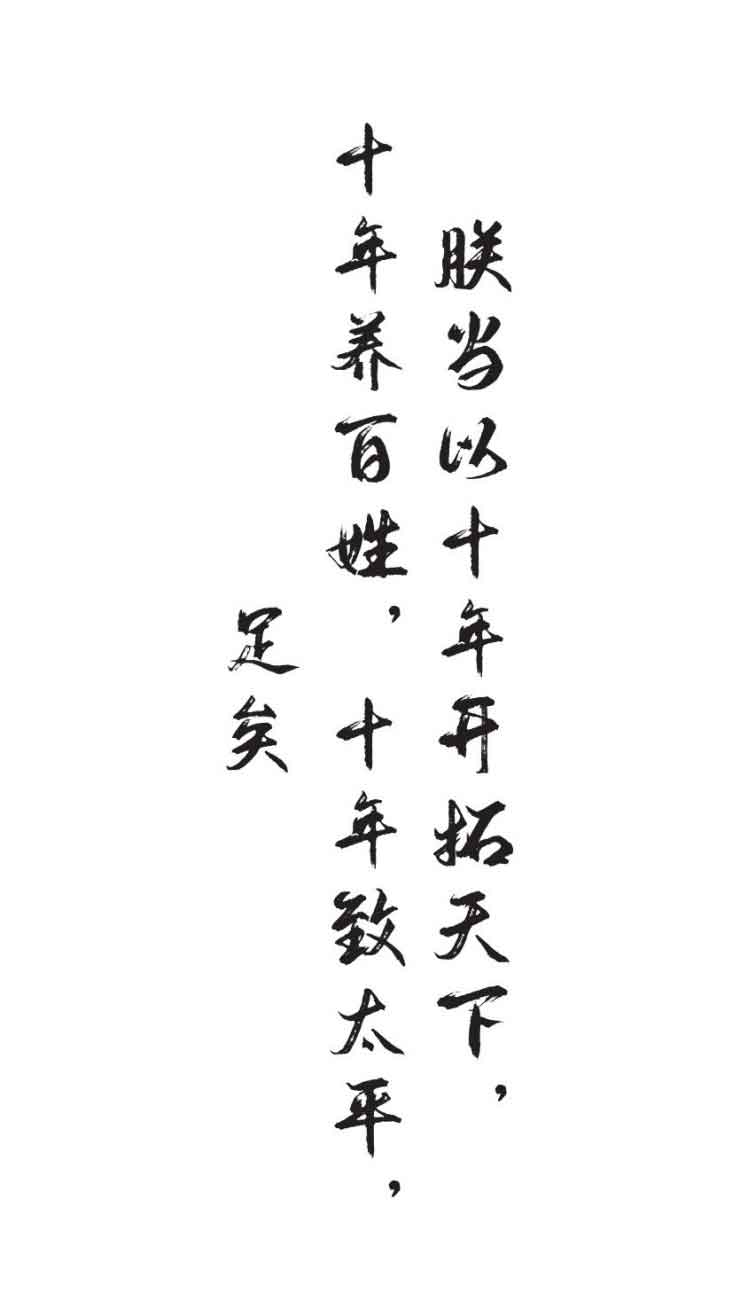 朕当以十年开拓天下，
十年养百姓，十年致太平，
足矣